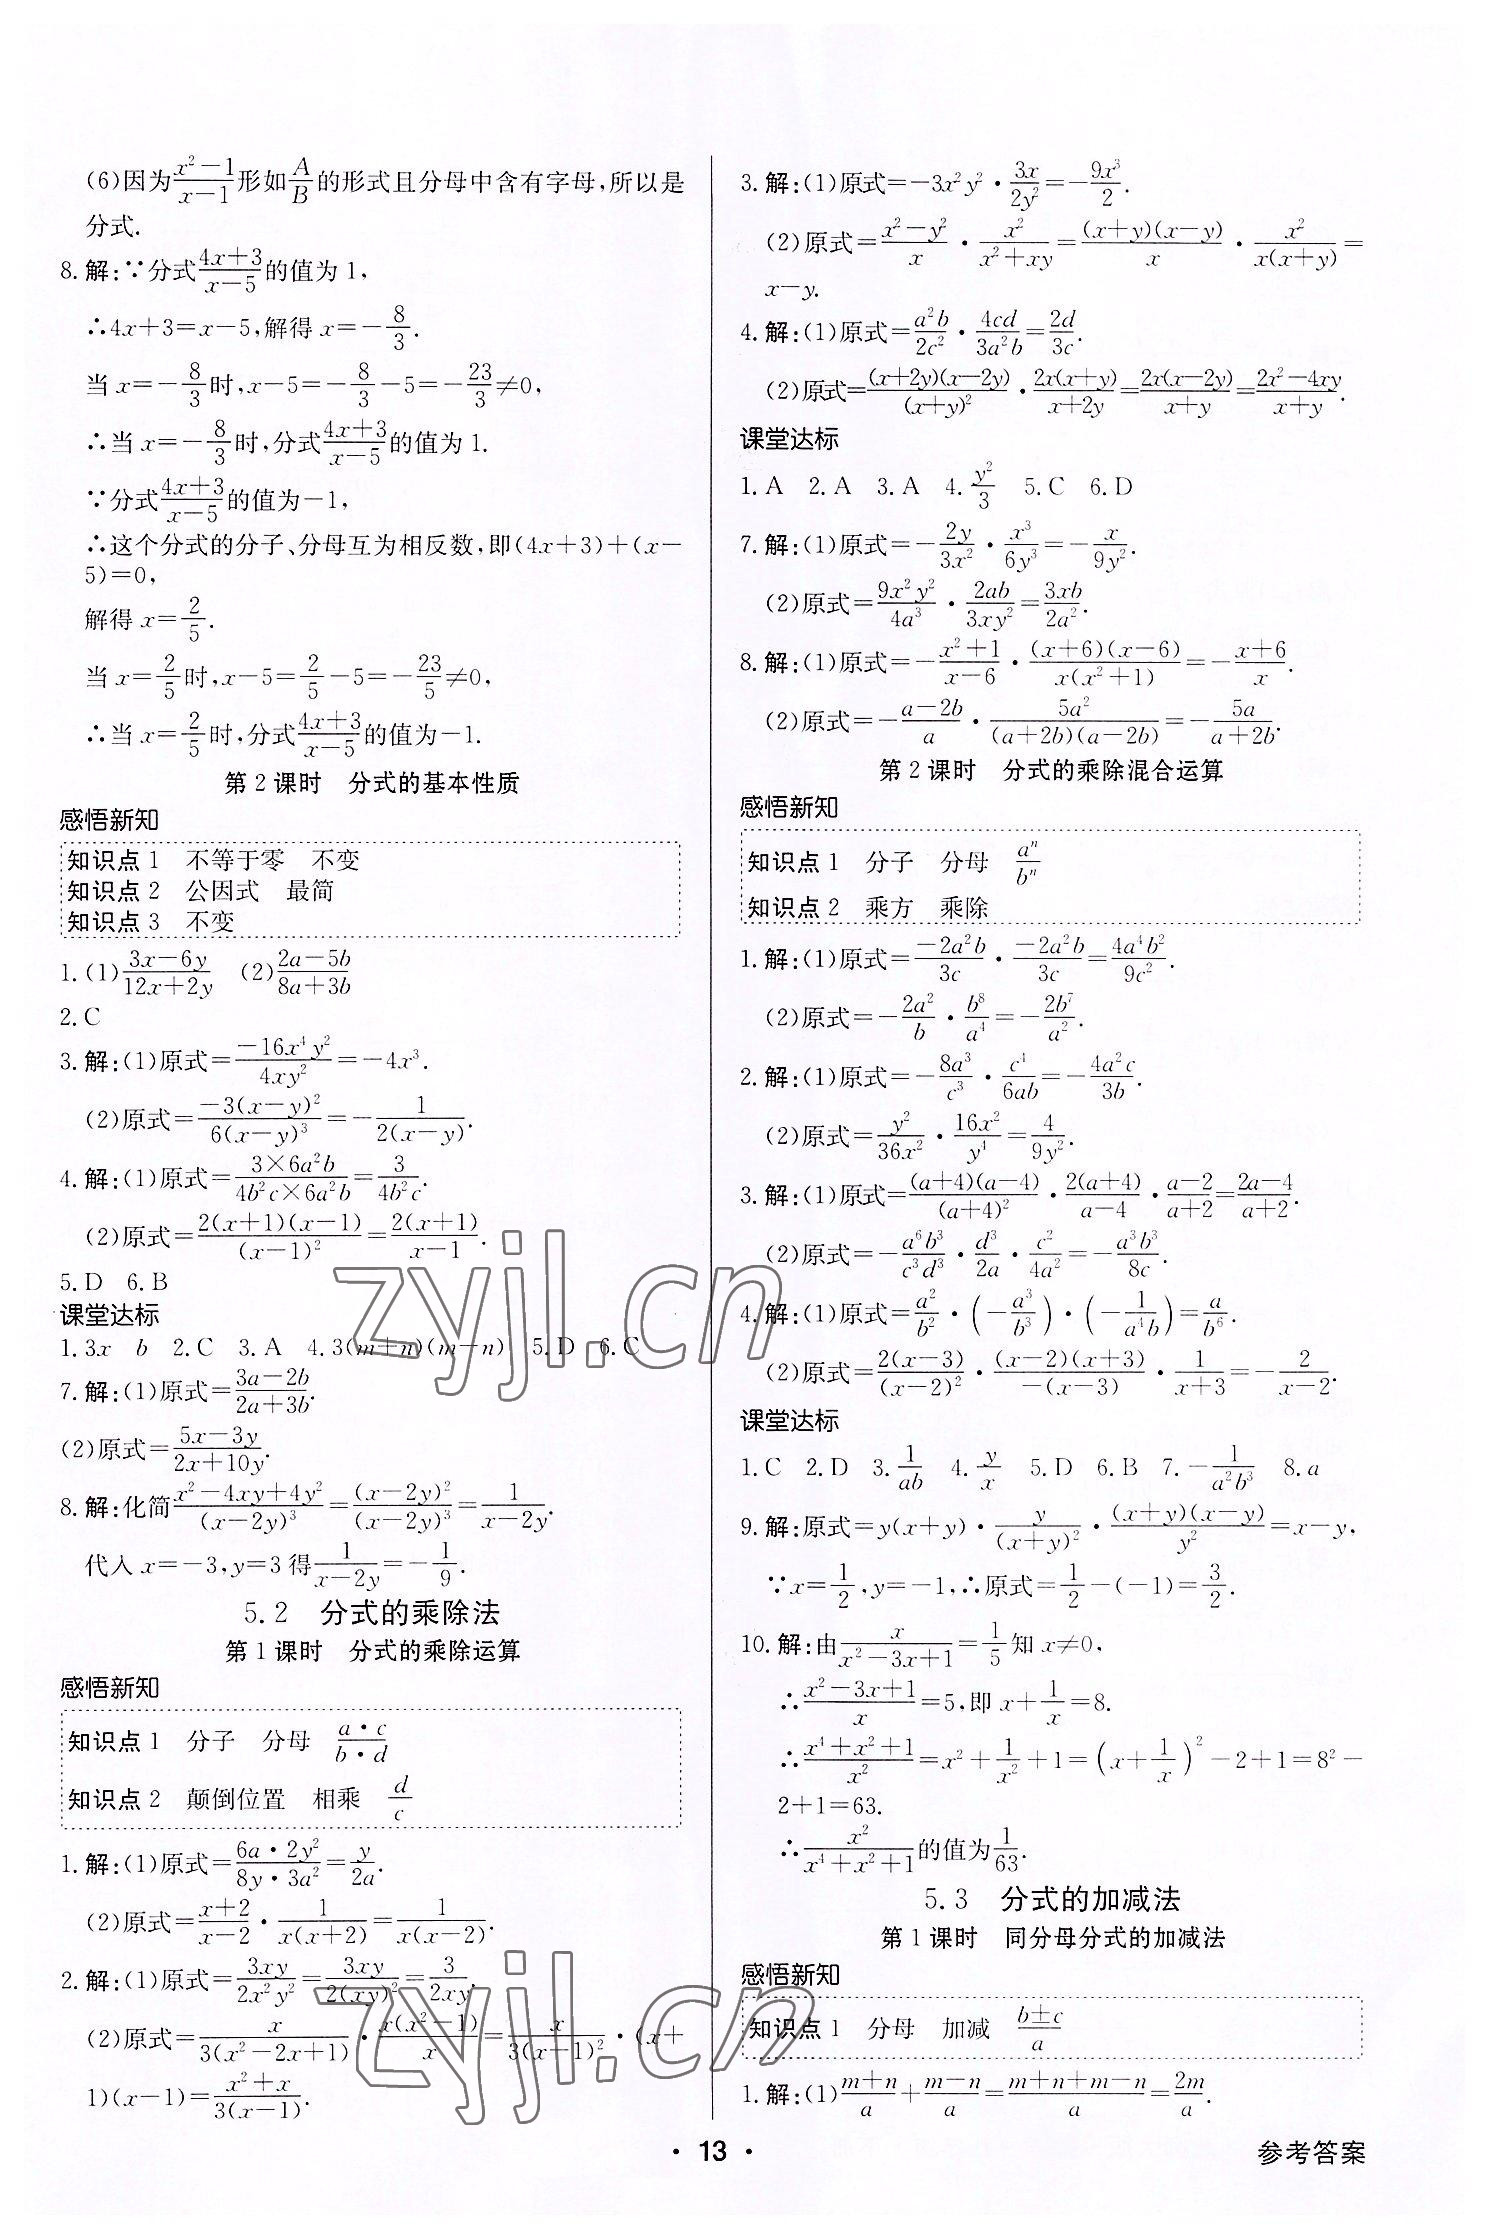 (6)因为\frac{x²-1}{x-1}形如\frac{A}{B}的形式且分母中含有字母,所以是
分式.
8.解:∵分式\frac{4x+3}{x-5}的值为1,
∴4x+3=x-5,解得x=-\frac{8}{3}.
当x=-\frac{8}{3}时,x-5=-\frac{8}{3}-5=-\frac{23}{3}≠0,
∴当x=-\frac{8}{3}时,分式\frac{4x+3}{x-5}的值为1.
∵分式\frac{4x+3}{x-5}的值为-1,
∴这个分式的分子、分母互为相反数,即(4x+3)+(x-
5)=0,
解得x=\frac{2}{5}.
当x=\frac{2}{5}时,x-5=\frac{2}{5}-5=-\frac{23}{5}≠0,
∴当x=\frac{2}{5}时,分式\frac{4x+3}{x-5}的值为-1.
第2课时 分式的基本性质
感悟新知
知识点1 不等于零 不变
知识点2 公因式 最简
知识点3 不变
1.(1)\frac{3x-6y}{12x+2y} (2)\frac{2a-5b}{8a+3b}
2.C
3.解:(1)原式=\frac{-16x⁴y²}{4xy²}=-4x³.
(2)原式=\frac{-3(x-y)²}{6(x-y)³}=-\frac{1}{2(x-y)}.
4.解:(1)原式=\frac{3×6a²b}{4b²c×6a²b}=\frac{3}{4b²c}.
(2)原式=\frac{2(x+1)(x-1)}{(x-1)²}=\frac{2(x+1)}{x-1}.
5.D 6.B
课堂达标
1.3x b 2.C 3.A 4.3(m+n)(m-n) 5.D 6.C
7.解:(1)原式=\frac{3a-2b}{2a+3b}.
(2)原式=\frac{5x-3y}{2x+10y}.
8.解:化简\frac{x²-4xy+4y²}{(x-2y)³}=\frac{(x-2y)²}{(x-2y)³}=\frac{1}{x-2y}.
代入x=-3,y=3得\frac{1}{x-2y}=-\frac{1}{9}.
5.2 分式的乘除法
第1课时 分式的乘除运算
感悟新知
知识点1 分子 分母 \frac{a·c}{b·d}
知识点2 颠倒位置 相乘 \frac{d}{c}
1.解:(1)原式=\frac{6a·2y²}{8y·3a²}=\frac{y}{2a}.
(2)原式=\frac{x+2}{x-2}·\frac{1}{x(x+2)}=\frac{1}{x(x-2)}.
2.解:(1)原式=\frac{3xy}{2x²y²}=\frac{3xy}{2(xy)²}=\frac{3}{2xy}.
(2)原式=\frac{x}{3(x²-2x+1)}·\frac{x(x²-1)}{x}=\frac{x}{3(x-1)²}·(x+
1)(x-1)=\frac{x²+x}{3(x-1)}.
3.解:(1)原式=-3x²y²·\frac{3x}{2y²}=-\frac{9x³}{2}.
(2)原式=\frac{x²-y²}{x}·\frac{x²}{x²+xy}=\frac{(x+y)(x-y)}{x}·\frac{x²}{x(x+y)}=
x-y.
4.解:(1)原式=\frac{a²b}{2c²}·\frac{4cd}{3a²b}=\frac{2d}{3c}.
(2)原式=\frac{(x+2y)(x-2y)}{(x+y)²}·\frac{2x(x+y)}{x+2y}=\frac{2x(x-2y)}{x+y}=\frac{2x²-4xy}{x+y}.
课堂达标
1.A 2.A 3.A 4.\frac{y²}{3} 5.C 6.D
7.解:(1)原式=-\frac{2y}{3x²}·\frac{x³}{6y³}=-\frac{x}{9y²}.
(2)原式=\frac{9x²y²}{4a³}·\frac{2ab}{3xy²}=\frac{3xb}{2a²}.
8.解:(1)原式=-\frac{x²+1}{x-6}·\frac{(x+6)(x-6)}{x(x²+1)}=-\frac{x+6}{x}.
(2)原式=-\frac{a-2b}{a}·\frac{5a²}{(a+2b)(a-2b)}=-\frac{5a}{a+2b}.
第2课时 分式的乘除混合运算
感悟新知
知识点1 分子 分母 \frac{aⁿ}{bⁿ}
知识点2 乘方 乘除
1.解:(1)原式=\frac{-2a²b}{3c}·\frac{-2a²b}{3c}=\frac{4a⁴b²}{9c²}.
(2)原式=-\frac{2a²}{b}·\frac{b⁸}{a⁴}=-\frac{2b⁷}{a²}.
2.解:(1)原式=-\frac{8a³}{c³}·\frac{c⁴}{6ab}=-\frac{4a²c}{3b}.
(2)原式=\frac{y²}{36x²}·\frac{16x²}{y⁴}=\frac{4}{9y²}.
3.解:(1)原式=\frac{(a+4)(a-4)}{(a+4)²}·\frac{2(a+4)}{a-4}·\frac{a-2}{a+2}=\frac{2a-4}{a+2}.
(2)原式=-\frac{a⁶b³}{c³d³}·\frac{d³}{2a}·\frac{c²}{4a²}=-\frac{a³b³}{8c}.
4.解:(1)原式=\frac{a²}{b²}·(-\frac{a³}{b³})·(-\frac{1}{a⁴b})=\frac{a}{b⁶}.
(2)原式=\frac{2(x-3)}{(x-2)²}·\frac{(x-2)(x+3)}{-(x-3)}·\frac{1}{x+3}=-\frac{2}{x-2}.
课堂达标
1.C 2.D 3.\frac{1}{ab} 4.\frac{y}{x} 5.D 6.B 7.-\frac{1}{a²b³} 8.a
9.解:原式=y(x+y)·\frac{y}{(x+y)²}·\frac{(x+y)(x-y)}{y²}=x-y,
∵x=\frac{1}{2},y=-1,∴原式=\frac{1}{2}-(-1)=\frac{3}{2}.
10.解:由\frac{x}{x²-3x+1}=\frac{1}{5}知x≠0,
∴\frac{x²-3x+1}{x}=5,即x+\frac{1}{x}=8.
∴\frac{x⁴+x²+1}{x²}=x²+\frac{1}{x²}+1=(x+\frac{1}{x})²-2+1=8²-
2+1=63.
∴\frac{x²}{x⁴+x²+1}的值为\frac{1}{63}.
5.3 分式的加减法
第1课时 同分母分式的加减法
感悟新知
知识点1 分母 加减 \frac{b±c}{a}
1.解:(1)\frac{m+n}{a}+\frac{m-n}{a}=\frac{m+n+m-n}{a}=\frac{2m}{a}.
·13·
参考答案
zyjl.cn
zyjl.cn